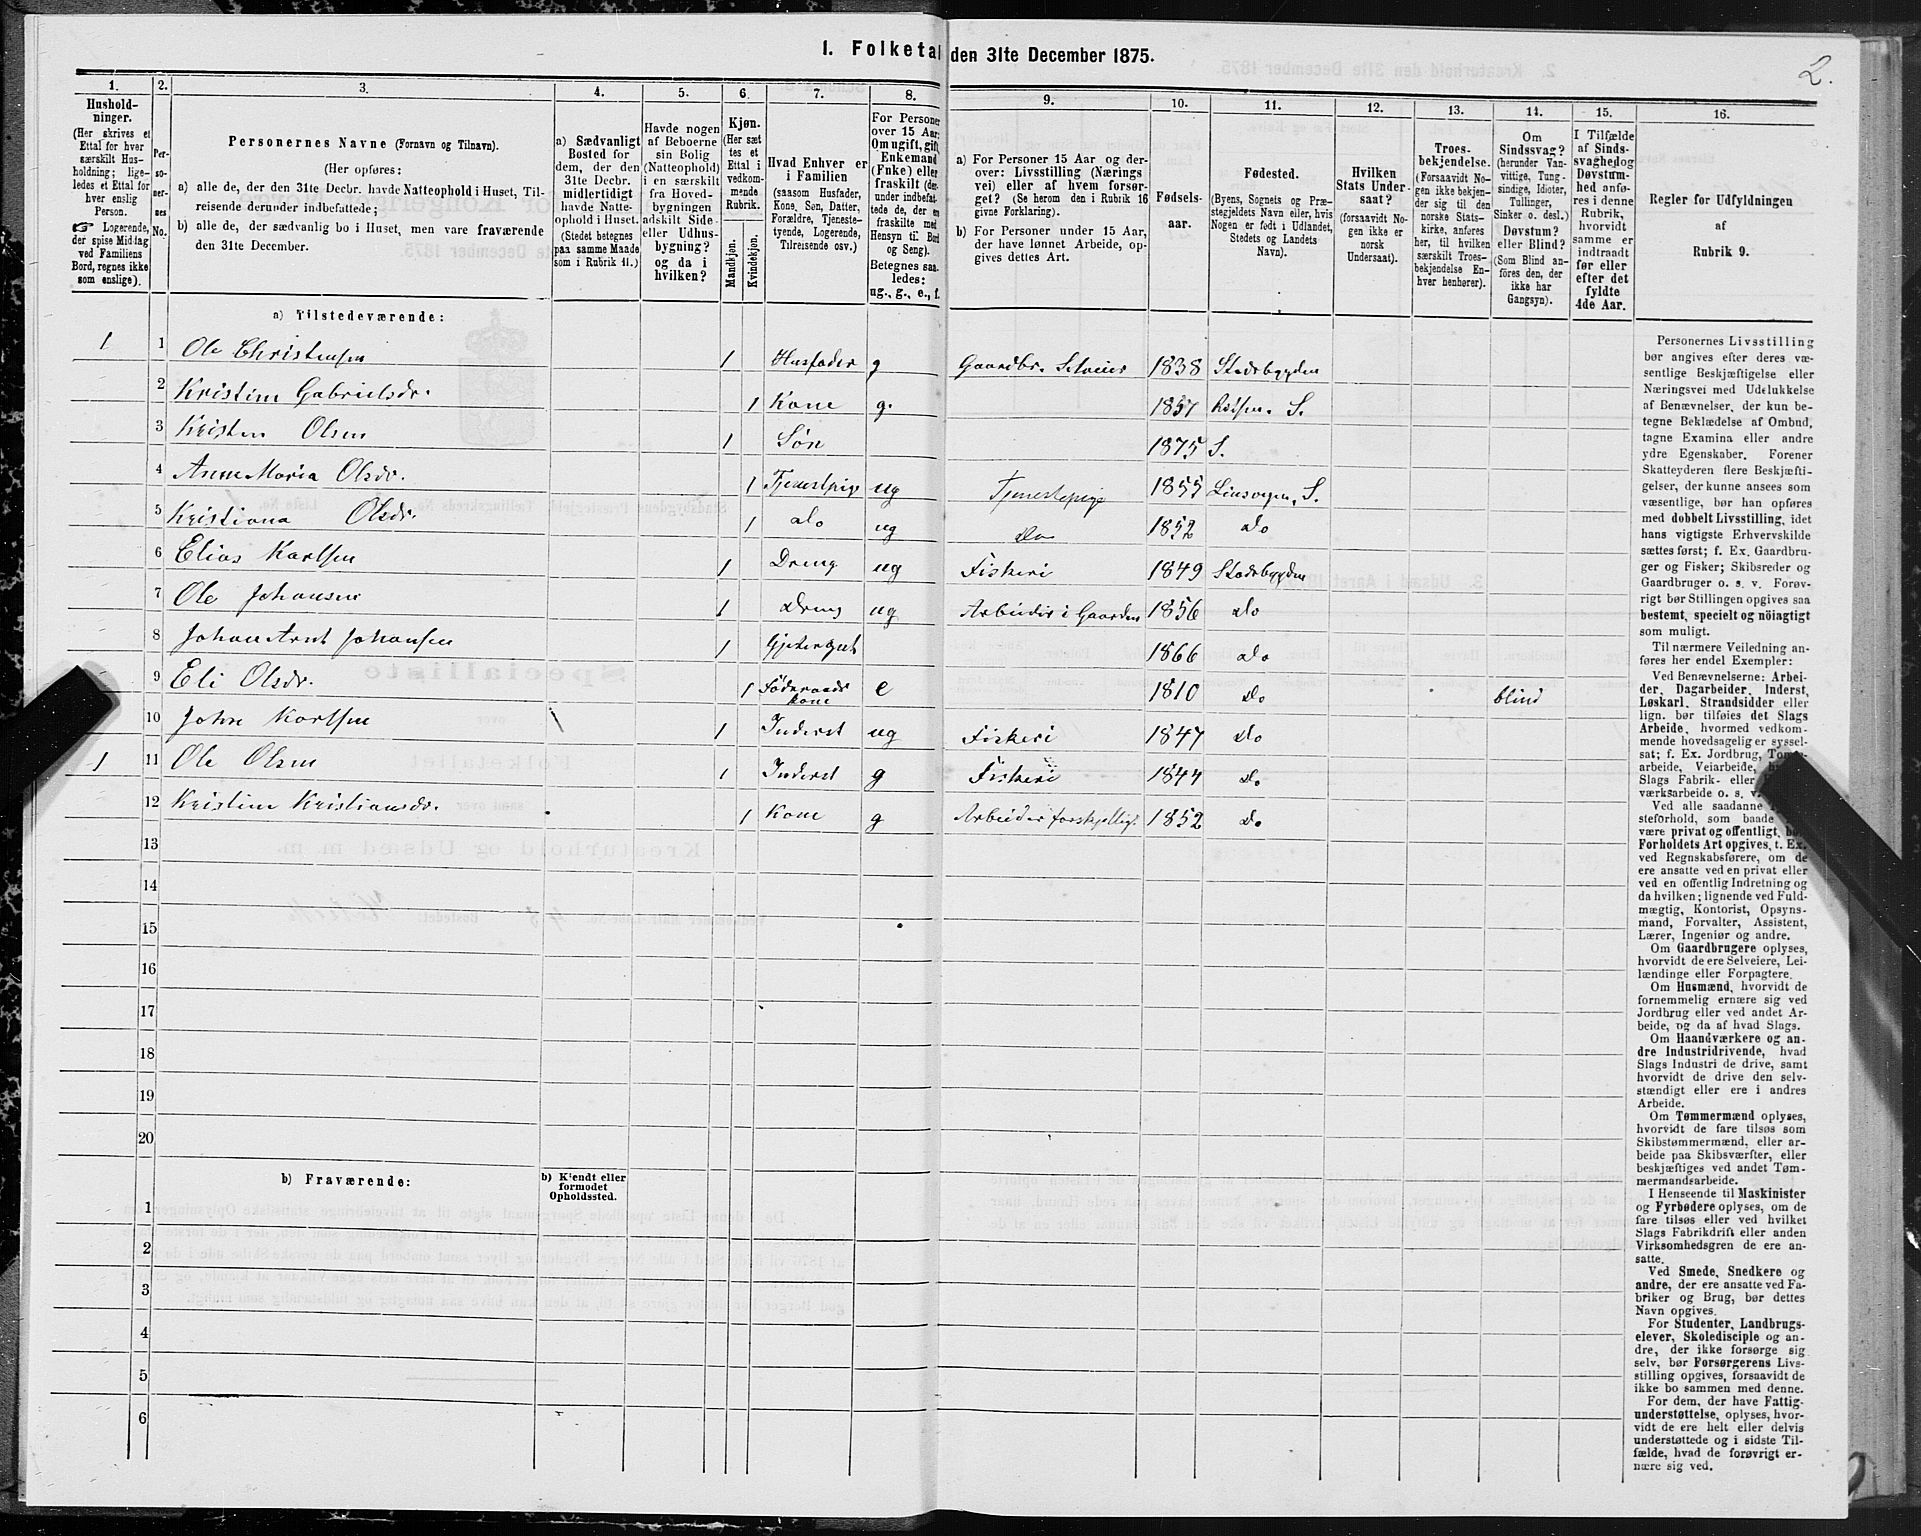 I. Folketal den 31te December 1875.
2.
1. 2. 3. 4. 5. 6. 7. 8. 9. 10. 11. 12. 13. 14. 15. 16.
Hushold-
ninger.
(Her skrives et
Ettal for hver
særskilt Hus-
holdning; lige-
ledes et Ettal for
hver enslig
Person.
☞ Logerende,
der spise Middag
ved Familiens
Bord, regnes ikke
som enslige).
Per-
so-
ner-
nes
No.
Personernes Navne (Fornavn og Tilnavn).
(Her opføres:
a) alle de, der den 31te Decbr. havde Natteophold i Huset, Til-
reisende derunder indbefattede;
b) alle de, der sædvanlig bo i Huset, men vare fraværende
den 31te December.
a) Sædvanligt
Bosted for
dem, der den
31te Decbr.
midlertidigt
havde Natte-
ophold i Huset.
(Stedet betegnes
paa samme Maade
som i Rubrik 11.)
Havde nogen
af Beboerne
sin Bolig
(Natteophold)
i en særskilt
fra Hoved-
bygningen
adskilt Side-
eller Udhus-
bygning?
og da i
hvilken?
Kjøn.
(Her sæt-
tes et
Ettal i
vedkom-
mende
Rubrik.
Mandkjøn.
Kvindekjøn.
Hvad Enhver er
i Familien
(saasom Husfader,
Kone, Søn, Datter,
Forældre, Tjeneste-
tyende, Logerende,
Tilreisende osv.)
For Personer
over 15 Aar:
Om ugift, gift,
Enkemand
(Enke) eller
fraskilt (der-
under indbefat-
tede de, der er
fraskilte med
Hensyn til Bord
og Seng).
Betegnes saa-
ledes:
ug., g., e., f.
a) For Personer 15 Aar og der-
over: Livsstilling (Nærings-
vei) eller af hvem forsør-
get? (Se herom den i Rubrik 16
givne Forklaring).
b) For Personer under 15 Aar,
der have lønnet Arbeide, op-
gives dettes Art.
Fødsels-
aar.
Fødested.
(Byens, Sognets og Præ-
stegjeldets Navn eller, hvis
Nogen er født i Udlandet,
Stedets og Landets
Navn).
Hvilken
Stats Under-
saat?
(forsaavidt No-
gen ikke er
norsk
Undersaat).
Troes-
bekjendelse.
(Forsaavidt No-
gen ikke bekjen-
der sig til den
norske Stats-
kirke, anføres
her, til hvilken
særskilt Troes-
bekjendelse En-
hver henhører).
Om
Sindssvag?
(herunder Van-
vittige, Tung-
sindige, Idioter,
Tullinger,
Sinker o. desl.)
Døvstum?
eller Blind?
(Som Blind an-
føres den, der
ikke har
Gangsyn).
I Tilfælde
af Sinds-
svaghed og
Døvstum-
hed anfø-
res i denne
Rubrik,
hvorvidt
samme er
indtraadt
før eller
efter det
fyldte
4de Aar.
Regler for Udfyldningen
af
Rubrik 9.
a) Tilstedeværende:
1 1 Ole Christensen 1 Husfader g Gaardbr. Selveier 1838 Stadsbygden
2 Kristine Gabrielsdr. 1 Kone g. 1857 Rissen. S.
3 Kristen Olsen 1 Søn 1875 S.
4 Anne Maria Olsdr. 1 Tjenestpige ug Tjenestepige 1855 S.
5 Kristiana Olsdr. 1 do ug Do 1852 do
6 Elias Karlsen 1 Dreng ug Fiskeri 1849 Stadsbygden
7 Ole Johansen 1 Dreng ug Arbeider i Gaarden 1856 do
8 Johan Arnt Johansen 1 Gjetergut 1866 do
9 Eli Olsdr. 1 Föderaads kone e 1810 do blind
10 John Karlsen 1 Inderst ug Fiskeri 1847 do
1 11 Ole Olsen 1 Inderst g Fiskeri 1844 do
12 Kristine Kristiansdr. 1 Kone g Arbeider forskjelligt 1852 do
13
14
15
16
17
18
19
20
b) Fraværende:
b) Kjendt eller
formodet
Opholdssted.
1
2
3
4
5
6
Personernes Livsstilling
bør angives efter deres væ-
sentlige Beskjæftigelse eller
Næringsvei med Udelukkelse
af Benævnelser, der kun be-
tegne Beklædelse af Ombud,
tagne Examina eller andre
ydre Egenskaber. Forener
Skatteyderen flere Beskjæfti-
gelser, der kunne ansees som
væsentlige, bør han opføres
med dobbelt Livsstilling, idet
hans vigtigste Erhvervskilde
sættes først; f. Ex. Gaardbru-
ger og Fisker; Skibsreder og
Gaardbruger o. s. v. Forøv-
rigt bør Stillingen opgives saa
bestemt, specielt og nöiagtigt
som muligt.
Til nærmere Veiledning an-
føres her endel Exempler:
Ved Benævnelserne: Arbei-
der, Dagarbeider, Inderst,
Løskarl, Strandsidder eller
lign. bør tilføies det Slags
Arbeide, hvormed vedkom-
mende hovedsagelig er syssel-
sat; f. Ex. Jordbrug,
arbeide, Veiarbeide,
Slags Fabrik- eller
værksarbeide o. s. v.
Ved alle saadanne
steforhold, som baade
være privat og offentligt, bør
Forholdets Art opgives, t. Ex.
ved Regnskabsførere, om de
ere ansatte ved en privat eller
ved en offentlig Indretning og
da hvilken; lignende ved Fuld-
mægtig, Kontorist, Opsyns-
mand, Forvalter, Assistent,
Lærer, Ingeniør og andre.
Om Gaardbrugere oplyses,
hvorvidt de ere Selveiere, Lei-
lændinge eller Forpagtere.
Om Husmænd, hvorvidt de
fornemmelig ernære sig ved
Jordbrug eller ved andet Ar-
beide, og da af hvad Slags.
Om Haandværkere og an-
dre Industridrivende, hvad
Slags Industri de drive, samt
hvorvidt de drive den selv-
stændigt eller ere i andres
Arbeide.
Om Tømmermænd oplyses,
hvorvidt de fare tilsøs som
Skibstømmermænd, eller ar-
beide paa Skibsværfter, eller
beskjæftiges ved andet Tøm-
mermandsarbeide.
I Henseende til Maskinister
og Fyrbødere oplyses, om de
fare tilsøs eller ved hvilket
Slags Fabrikdrift eller anden
Virksomhedsgren de ere an-
satte.
Ved Smede, Snedkere og
andre, der ere ansatte ved Fa-
briker og Brug, bør dettes
Navn opgives.
For Studenter, Landbrugs-
elever, Skoledisciple og an-
dre, der ikke forsørge sig
selv, bør Forsørgerens Livs-
stilling opgives, forsaavidt de
ikke bo sammen med denne.
For dem, der have Fattig-
understøttelse, oplyses, hvor-
vidt de ere helt eller delvis
understøttede og i sidste Til-
fælde, hvad de forøvrigt er-
nære sig ved.